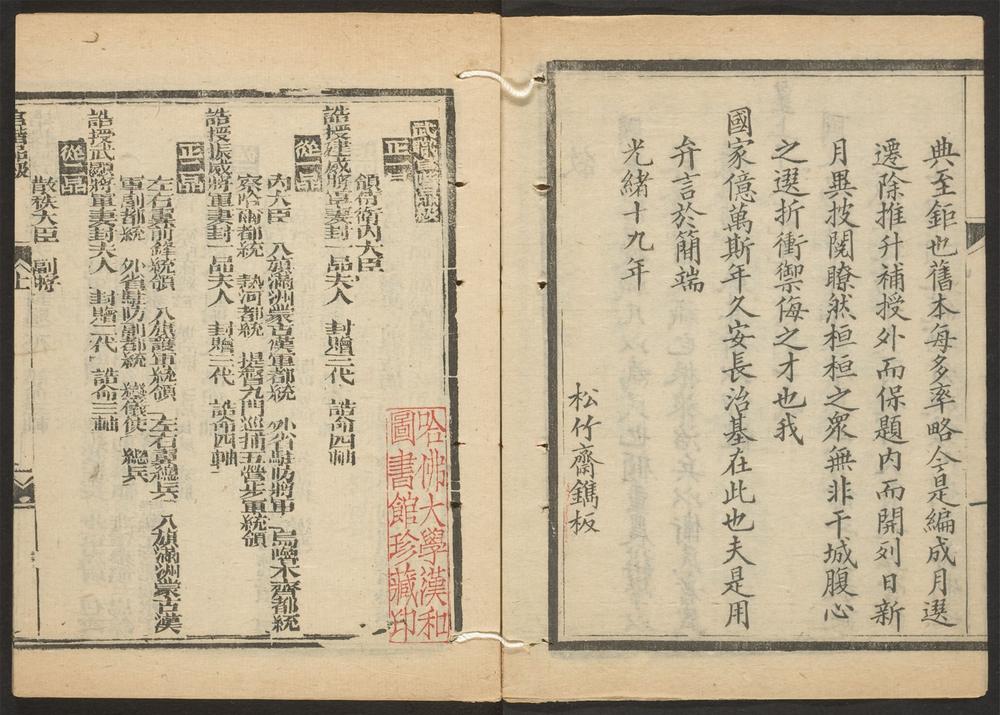 典至鉅也舊本每多率略今是編成月選
遷除推升補授外而保題內而開列日新
月異披閱瞭然桓桓之眾無非干城腹心
之選折衝禦侮之才也我
國家億萬斯年久安長治基在此也夫是用
弁言於簡端
光緒十九年
松竹齋鐫板
武職官階品級
正一品
領侍衛內大臣
誥授建威將軍妻封一品夫人 封贈三代 誥命四軸
從一品
內大臣 八旗滿洲蒙古漢軍都統 外省駐防將軍 烏嚕木齊都統
察哈爾都統 熱河都統 提督九門巡捕五營步軍統領
誥授振威將軍妻封一品夫人 封贈三代 誥命四軸
正二品
左右翼前鋒統領 八旗護軍統領 左右翼總兵 八旗滿洲蒙古漢
軍副都統 外省駐防副都統 鑾儀使 總兵
誥授武顯將軍妻封夫人 封贈二代 誥命三軸
從二品
散秩大臣 副將
官階品級
上
哈佛大學漢和
圖書館珍藏印